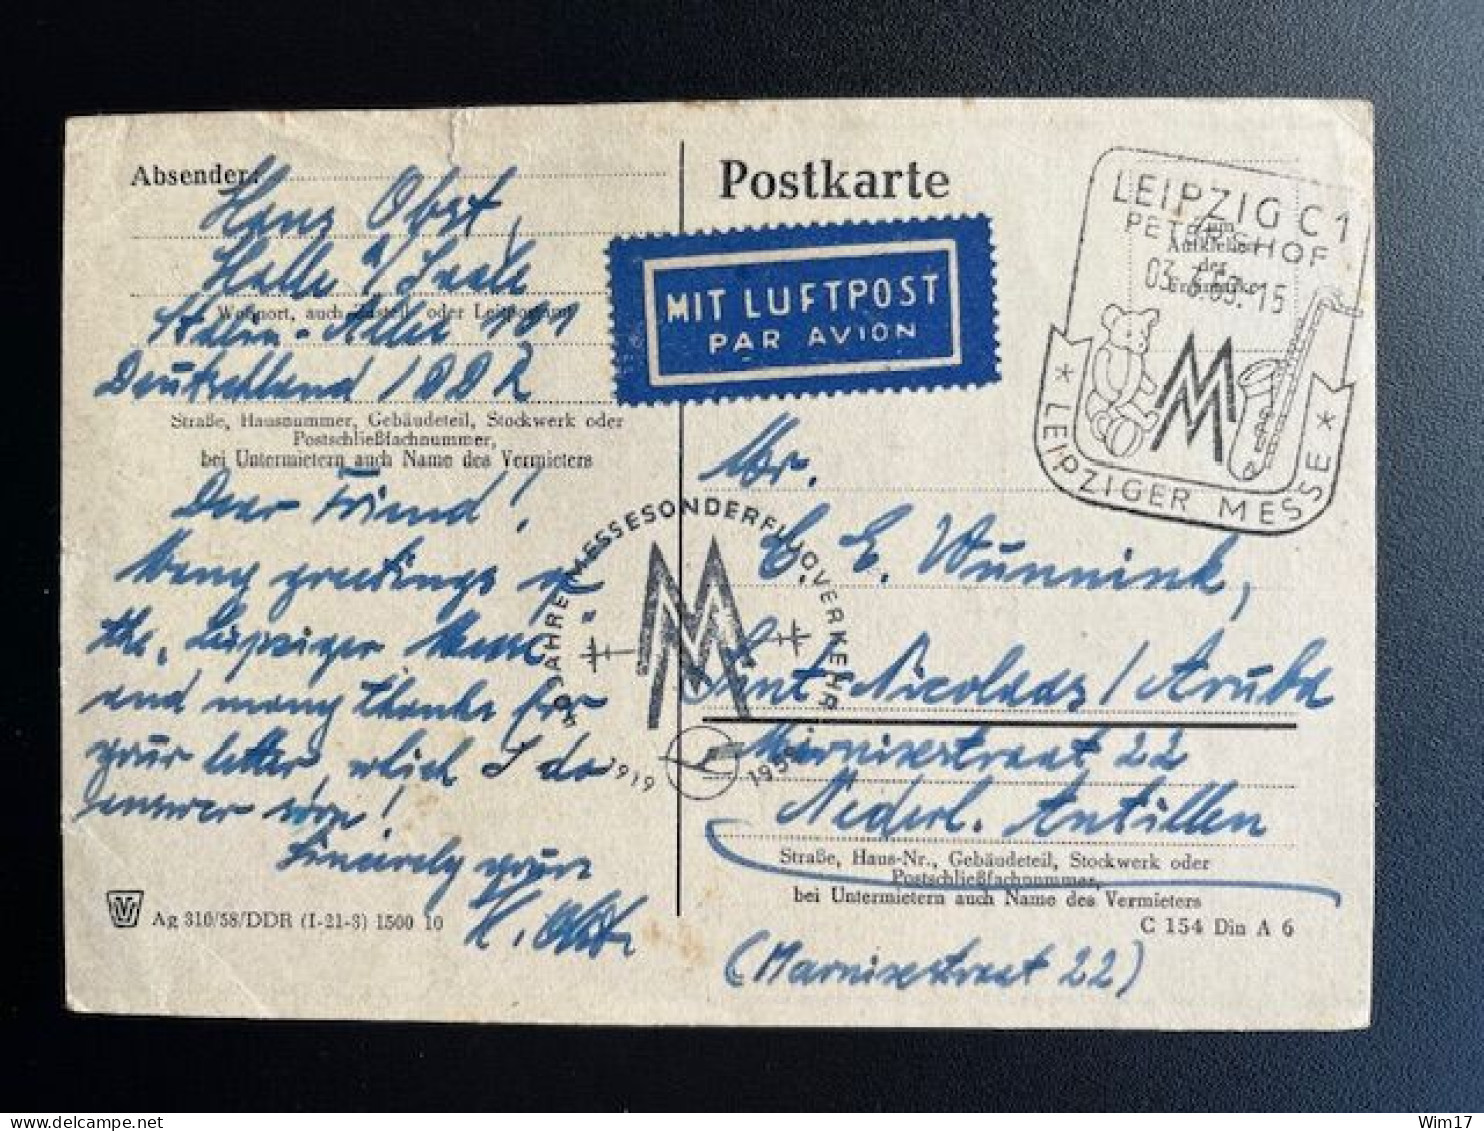 Absender:
Hans Obst,
Halle a/Saale
Wohnort, auch Zustell- oder Leitpostamt
101
Deutschland / DDR
Straße, Hausnummer, Gebäudeteil, Stockwerk oder
Postschließfachnummer,
bei Untermietern auch Name des Vermieters
Dear Friend!
Many greetings of
the Leipziger Messe
and many thanks for
your letter, which I do
answer soon!
Sincerely yours
H. Obst.
Ag 310/58/DDR (I-21-3) 1500 10
Postkarte
MIT LUFTPOST
PAR AVION
LEIPZIG C1
PETERSHOF
* LEIPZIGER MESSE *
Zum
Aufkleben
der
JAHRE MESSESONDERFLUGVERKEHR
1919
Mr.
E. E. Wunnink,
Sint Nicolaas / Aruba
Marnixstraat 22
Nederl. Antillen
Straße, Haus-Nr., Gebäudeteil, Stockwerk oder
Postschließfachnummer,
bei Untermietern auch Name des Vermieters
C 154 Din A 6
(Marnixstraat 22)
Wim17